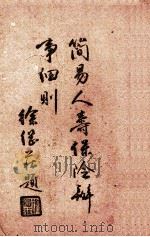 簡易人壽保險辦
事細則
徐繼莊題